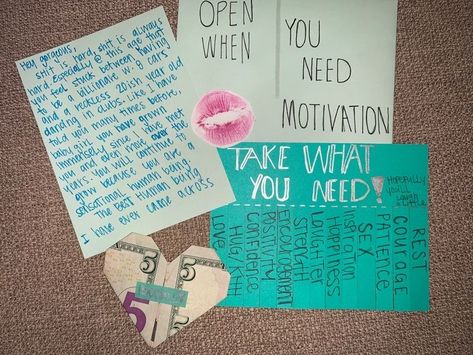 Hey gorgeous,
shit is hard, shit is always
hard especially @ this age that
you feel stuck between having
to be a billionaire w/ 8 cars
and a reckless 20ish year old
dancing in clubs. Like I have
told you many times before,
baby girl you have grown
immensely since I have met
you and even know over the
years. You will continue to
grow because you are a
sensational human being.
The best human being
I have ever came across
OPEN
WHEN
YOU
NEED
MOTIVATION
TAKE WHAT
YOU NEED!
Hopefully
you'll
laugh
a little
Love
Hug
Confidence
Positivity
ENCOURAGEMENT
Strength
Laughter
Happiness
Inspiration
SEX
PATIENCE
COURAGE
REST
5
5